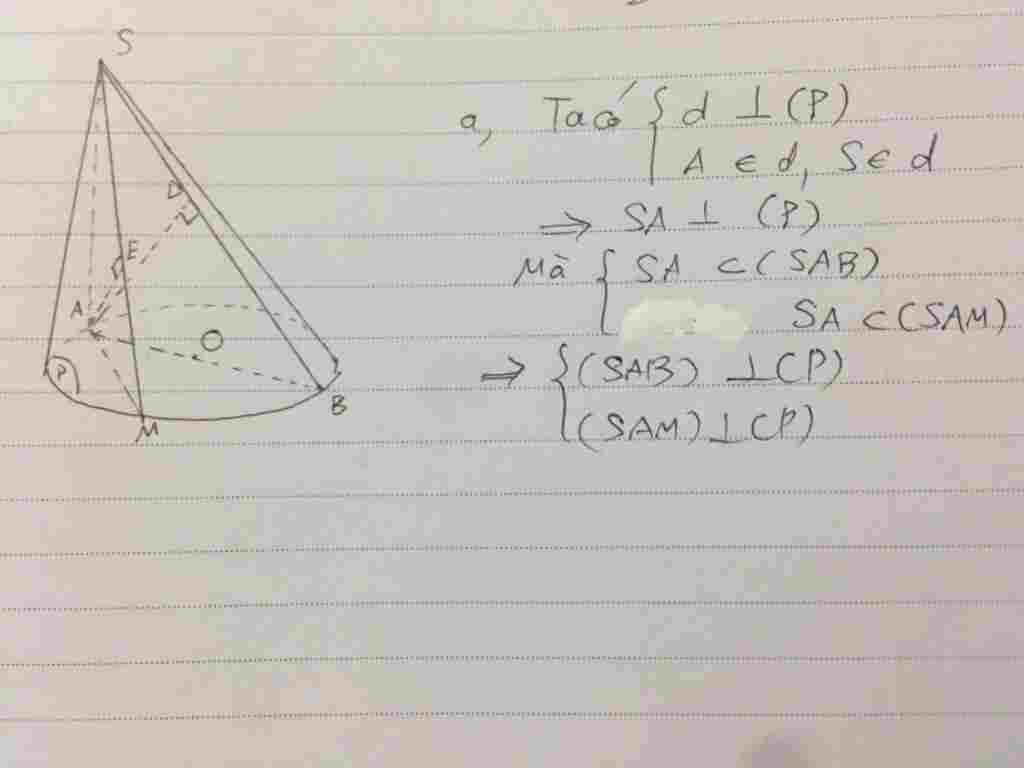 S
D
E
A
O
P
B
M
a, Ta có { d ⊥ (P)
A ∈ d, S ∈ d
⇒ SA ⊥ (P)
Mà { SA ⊂ (SAB)
SA ⊂ (SAM)
⇒ { (SAB) ⊥ (P)
(SAM) ⊥ (P)